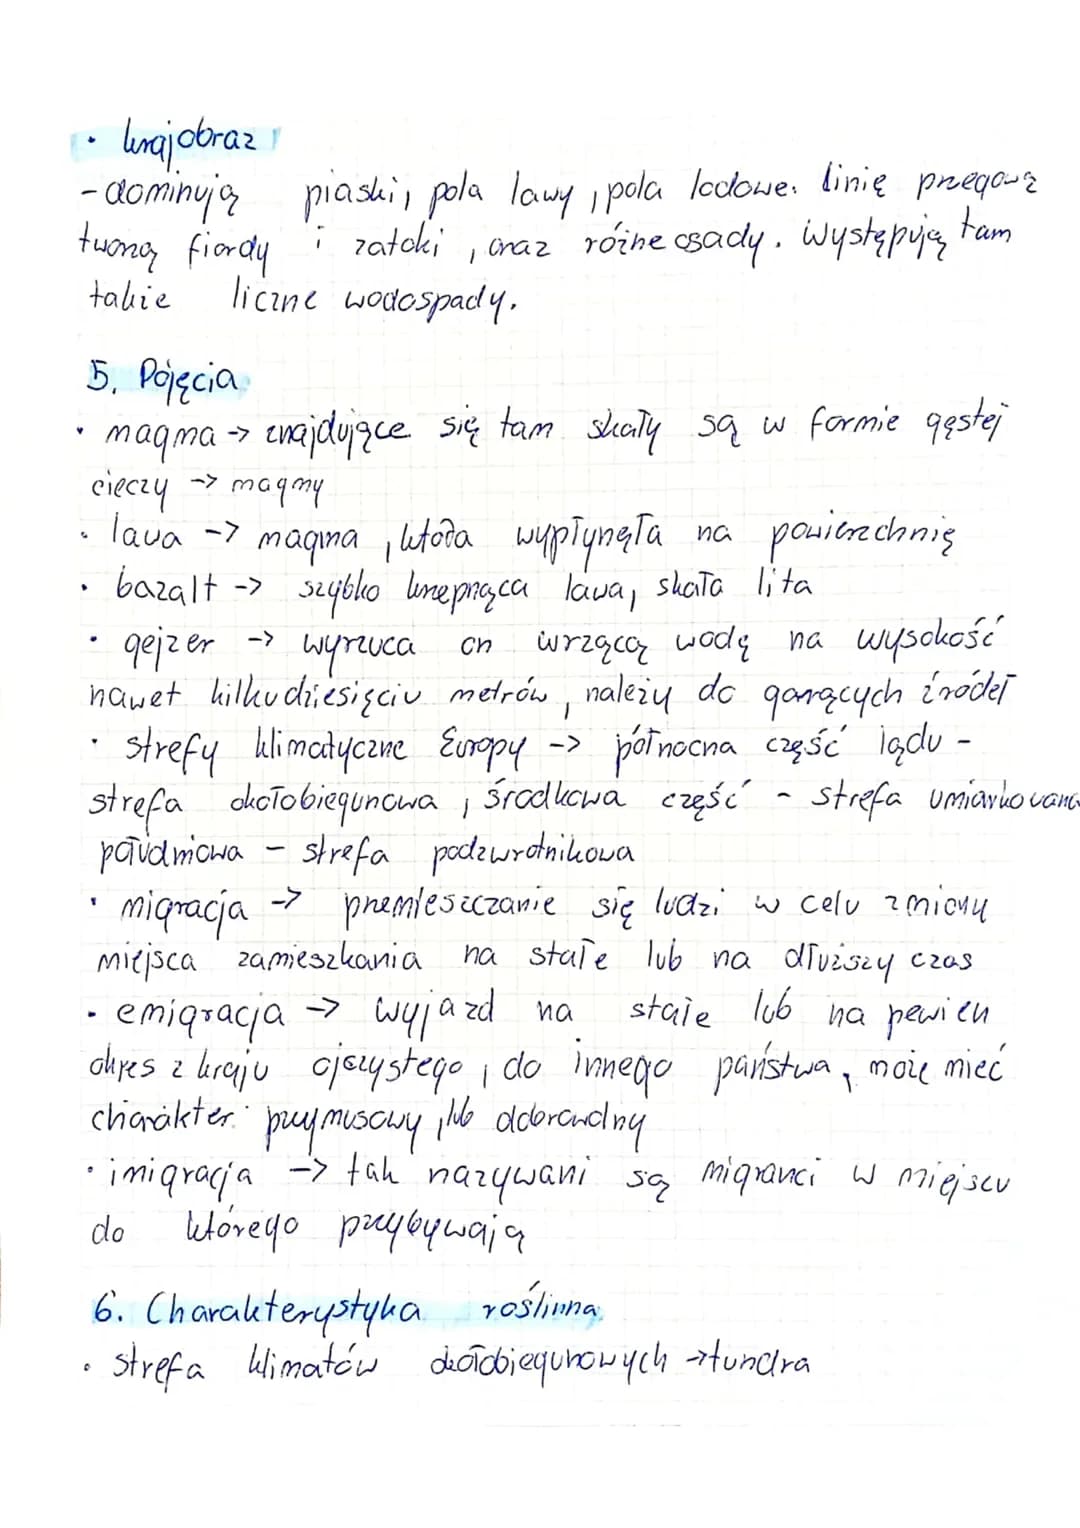 • krajobraz
- dominują piaski, pola lawy, pola lodowe. linię przegową
tworzą fiordy i zatoki, oraz różne osady. Występują tam
także liczne wodospady.
5. Pojęcia
• magma -> znajdujące się tam skały są w formie gęstej
cieczy -> magmy
• lava -> magma, która wypłynęła na powierzchnię
• bazalt -> szybko krzepnąca lawa, skała lita
• gejzer -> wyrzuca on wrzącą wodę na wysokość
nawet kilkudziesięciu metrów, należy do gorących źródeł
• strefy klimatyczne Europy -> północna część lądu -
strefa okołobiegunowa, środkowa część - strefa umiarkowana
południowa - strefa podzwrotnikowa
• migracja -> przemieszczanie się ludzi w celu zmiany
miejsca zamieszkania na stałe lub na dłuższy czas
• emigracja -> wyjazd na stałe lub na pewien
okres z kraju ojczystego, do innego państwa, może mieć
charakter: przymusowy, lub dobrowolny
• imigracja -> tak nazywani są migranci w miejscu
do którego przybywają
6. Charakterystyka roślinna
• strefa klimatów okołobiegunowych -> tundra